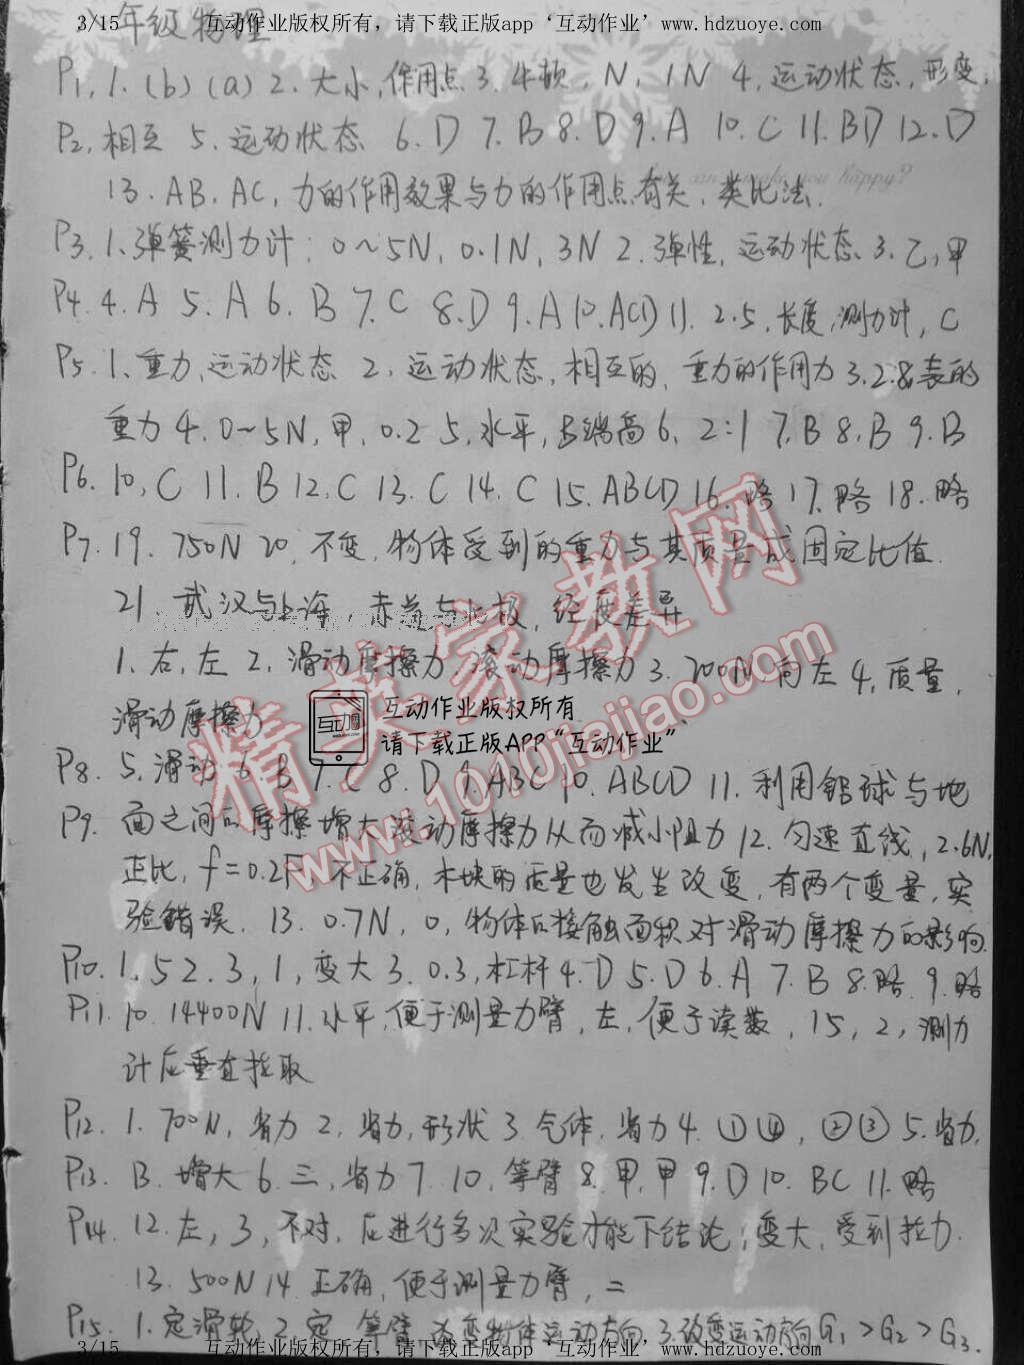 3/15 互动作业版权所有，请下载正版app‘互动作业’www.hdzuoye.com
年级物理
P1, 1. (b) (a) 2. 大小, 作用点 3. 牛顿, N, 1N 4. 运动状态, 形变,
P2, 相互 5. 运动状态 6. D 7. B 8. D 9. A 10. C 11. BD 12. D
13. AB, AC, 力的作用效果与力的作用点有关, 类比法.
P3. 1. 弹簧测力计; 0~5N, 0.1N, 3N 2. 弹性, 运动状态 3. 乙, 甲
P4. 4. A 5. A 6. B 7. C 8. D 9. A 10. ACD 11. 2.5, 长度, 测力计, C
P5. 1. 重力, 运动状态 2. 运动状态, 相互的, 重力的作用力 3. 2.8, 表的
重力 4. 0~5N, 甲, 0.2 5. 水平, B端高 6. 2:1 7. B 8. B 9. B
P6. 10. C 11. B 12. C 13. C 14. C 15. ABCD 16. 略 17. 略 18. 略
P7. 19. 750N 20. 不变, 物体受到的重力与其质量成固定比值.
21 武汉与上海 赤道与北极, 经度差异
1. 右, 左 2. 滑动摩擦力 滚动摩擦力 3. 200N 向左 4. 质量,
滑动摩擦力
互动
互动作业版权所有
请下载正版APP“互动作业”
精英家教网
www.1010jiajiao.com
P8. 5. 滑动 6. B 7. C 8. D 9. ABC 10. ABCD 11. 利用铝球与地
P9. 面之间的摩擦增大滚动摩擦力从而减小阻力 12. 匀速直线, 2.6N,
正比, f=0.2F 不正确, 木块的质量也发生改变, 有两个变量, 实
验错误. 13. 0.7N, 0, 物体的接触面积对滑动摩擦力的影响.
P10. 1. 5 2. 3, 1, 变大 3. 0.3, 杠杆 4. D 5. D 6. A 7. B 8. 略 9. 略
P11. 10. 14400N 11. 水平, 便于测量力臂, 左, 便于读数, 15, 2, 测力
计应垂直拉取
P12. 1. 700N, 省力 2. 省力, 形状 3. 气体, 省力 4. ①④, ②③ 5. 省力,
P13. B. 增大 6. 三, 省力 7. 10, 等臂 8. 甲, 甲 9. D 10. BC 11. 略
P14. 12. 左, 3, 不对, 应进行多次实验才能下结论; 变大, 受到拉力.
13. 500N 14 正确, 便于测量力臂, 二
P15. 1. 定滑轮 2. 定 等臂 改变物体运动方向 3. 改变运动方向 G1>G2>G3.
3/15 互动作业版权所有，请下载正版app‘互动作业’www.hdzuoye.com